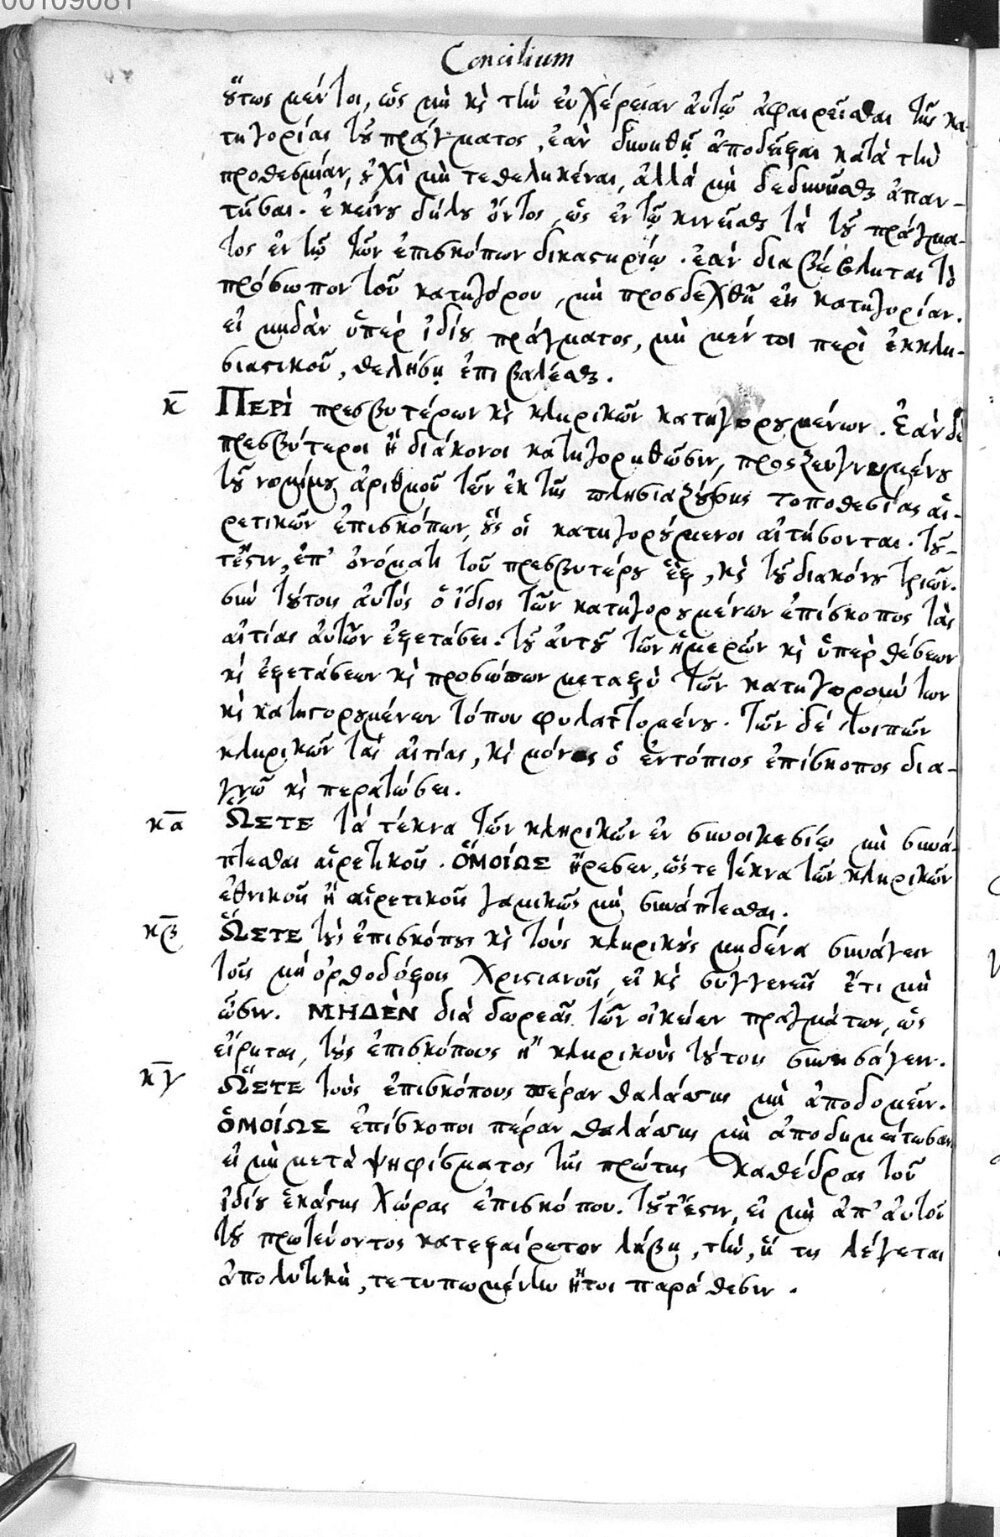 00109081
Concilium
οὕτως μέντοι, ὡς μὴ καὶ τὴν εὐχέρειαν αὐτῷ ἀφαιρεῖσθαι τῆς κα-
τηγορίας τοῦ πράγματος, ἐὰν δυνηθῇ ἀποδεῖξαι κατὰ τὴν
προθεσμίαν, οὐχὶ μὴ τεθεληκέναι, ἀλλὰ μὴ δεδυνῆσθαι ἀπαν-
τῆσαι. ἐκείνου δήλου ὄντος, ὡς ἐν τῷ κινεῖσθαι τὰ τοῦ πράγμα-
τος ἐν τῷ τῶν ἐπισκόπων δικαστηρίῳ. ἐὰν διαβέβληται τὸ
πρόσωπον τοῦ κατηγόρου, μὴ προσδεχθῇ εἰς κατηγορίαν.
εἰ μηδὰν ὑπὲρ ἰδίου πράγματος, μὴ μέντοι περὶ ἐκκλη-
σιαστικοῦ, θελήσῃ ἐπιβαλέσθαι.
κ ΠΕΡῚ πρεσβυτέρων καὶ κληρικῶν κατηγορουμένων. Ἐὰν δὲ
πρεσβύτεροι ἢ διάκονοι κατηγορηθῶσιν, προσζευγνυμένου
τοῦ νομίμου ἀριθμοῦ τῶν ἐκ τῆς πλησιαζούσης τοποθεσίας αἱ-
ρετικῶν ἐπισκόπων, οὓς οἱ κατηγορούμενοι αἰτήσονται. του-
τέστιν, ἐπ' ὀνόματι τοῦ πρεσβυτέρου ἓξ, καὶ τοῦ διακόνου τριῶν.
σὺν τούτοις αὐτὸς ὁ ἴδιος τῶν κατηγορουμένων ἐπίσκοπος τὰς
αἰτίας αὐτῶν ἐξετάσει. τοῦ αὐτοῦ τῶν ἡμερῶν καὶ ὑπερθέσεων
καὶ ἐξετάσεων καὶ προσώπων μεταξὺ τῶν κατηγορούντων
καὶ κατηγορουμένων τόπου φυλαττομένου. τῶν δὲ λοιπῶν
κληρικῶν τὰς αἰτίας, καὶ μόνος ὁ ἐντόπιος ἐπίσκοπος δια-
γνῷ καὶ περατώσει.
κα ὯΣΤΕ τὰ τέκνα τῶν κληρικῶν ἐν συνοικεσίῳ μὴ συνά-
πτεσθαι αἱρετικοῖς. ὉΜΟΊΩΣ ἤρεσεν, ὥστε τέκνα τῶν κληρικῶν
ἐθνικοῖς ἢ αἱρετικοῖς γαμικῶς μὴ συνάπτεσθαι.
κβ ὭΣΤΕ τοὺς ἐπισκόπους καὶ τοὺς κληρικοὺς μηδένα συνάγειν
τοῖς μὴ ὀρθοδόξοις Χριστιανοῖς, εἰ καὶ συγγενεῖς ἔτι μὴ
ὦσιν. ΜΗΔῈΝ διὰ δωρεᾶς τῶν οἰκείων πραγμάτων, ὡς
εἴρηται, τοὺς ἐπισκόπους ἢ κληρικοὺς τούτοις συνεισάγειν.
κγ ὭΣΤΕ τοὺς ἐπισκόπους πέραν θαλάσσης μὴ ἀποδομεῖν.
ὉΜΟΊΩΣ ἐπίσκοποι πέραν θαλάσσης μὴ ἀποδημείτωσαν
εἰ μὴ μετὰ ψηφίσματος τῆς πρώτης καθέδρας τοῦ
ἰδίου ἑκάστης χώρας ἐπισκόπου. τοῦτ' ἔστιν, εἰ μὴ ἀπ' αὐτοῦ
τοῦ πρωτεύοντος κατεξαίρετον λήβῃ, τὴν, ἥ τις λέγεται
ἀπολυτικὴ, τετυπωμένην ἤτοι παράθεσιν.